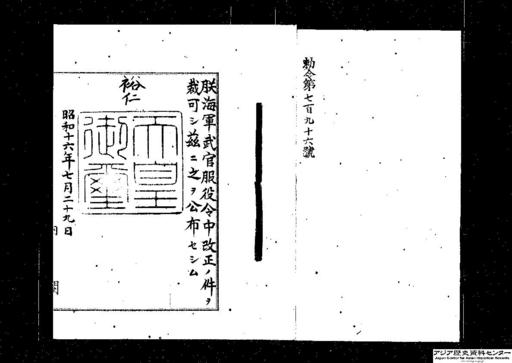 勅令第七百九十六號
朕海軍武官服役令中改正ノ件ヲ
裁可シ茲ニ之ヲ公布セシム
裕仁
天皇
御璽
昭和十六年七月二十九日
内
閣
アジア歴史資料センター
Japan Center for Asian Historical Records